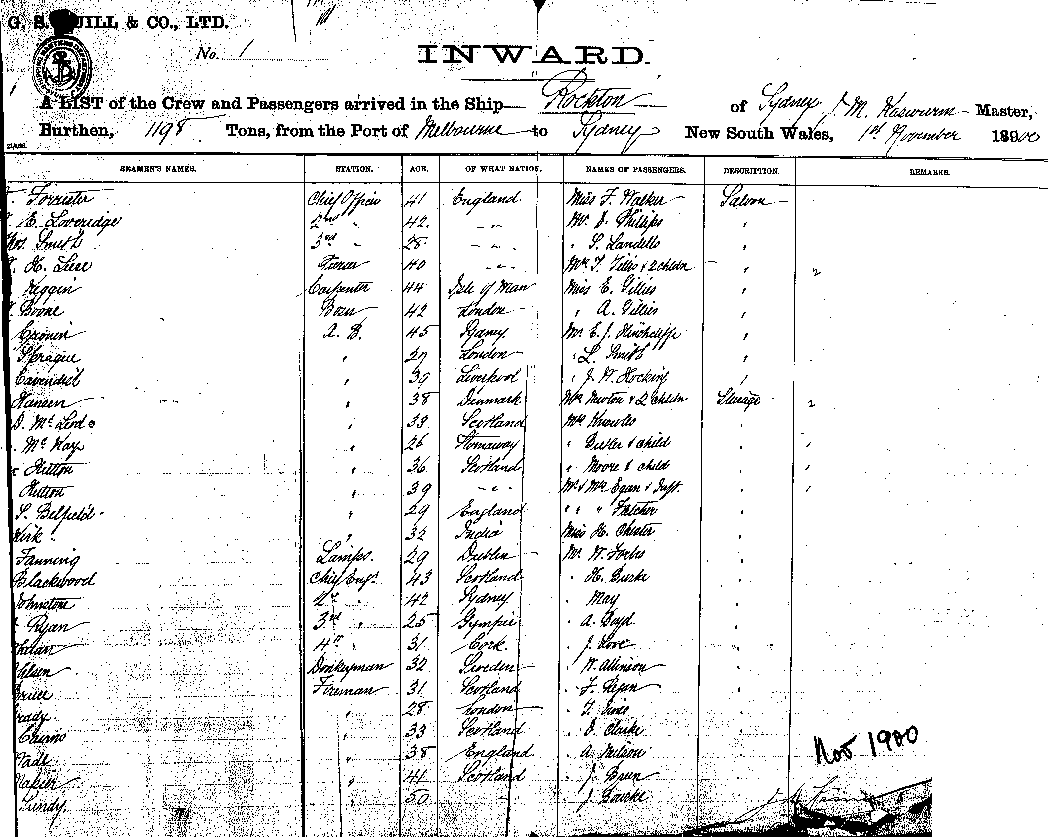 G. S. YUILL & CO., LTD.
No. 1
INWARD.
A LIST of the Crew and Passengers arrived in the Ship Rockton of Sydney, J. M. Master,
Burthen, 1198 Tons, from the Port of Melbourne to Sydney New South Wales, 1st November 1900
SEAMEN'S NAMES. STATION. AGE. OF WHAT NATION. NAMES OF PASSENGERS. DESCRIPTION. REMARKS.
Forrister Chief Officer 41 England Miss F. Walker Saloon
E. Loveridge 2nd " 42 " " Mr. D. Phillips "
Smith 3rd " 28 " " " S. Landells "
H. Purser 40 " " Mrs T. & 2 childn " 2
Carpenter 44 Isle of Man Miss E. Gillies "
Boone Bosn 42 London " A. Gillies "
Cronin A. B. 45 Sydney Mr E. J. Hinchcliffe "
Sprague " 27 London " L. Smith "
Cavendish " 39 Liverpool " J. W. Hocking "
Hansen " 38 Denmark Mrs Newton & 2 childn Steerage 2
D. Mc " 33 Scotland Mrs Knowles "
Mc Kay " 26 Stornaway " Butler & child " '
Hutton " 36 Scotland " Moore & child " '
Hutton " 39 " " Mr & Mrs Egan & Inft. " '
S. Belfield " 29 England " " " Fletcher "
Kirk " 32 India Miss H. Chester "
Fanning Lamps. 29 Dublin Mr. W. Forbes "
Blackwood Chief Engr. 43 Scotland " H. Burke "
Johnstone 2nd " 42 Sydney " May "
Ryan 3rd " 25 Gympie " A. Boyd "
4th " 31 Cork " J. Love "
Donkeyman 32 Sweden " W. Allinson "
Fireman 31 Scotland " F. "
" 28 London " T. "
" 33 Scotland " D. Clarke "
" 38 England " A. Neilson "
Nov 1900
" 41 Scotland " J. "
Lundy " 50 " " J. Bourke "